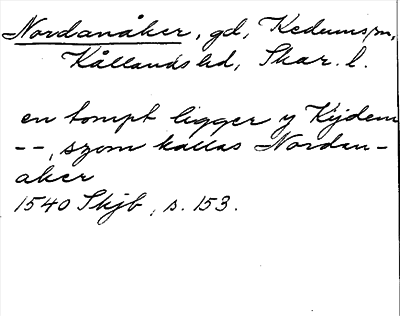 Nordanåker, gd, Kedums sn,
Kållands hd, Skar. l.
en tompt ligger y Kijdem
--, szom kallas Nordan-
aker
1540 Skjb, s. 153.